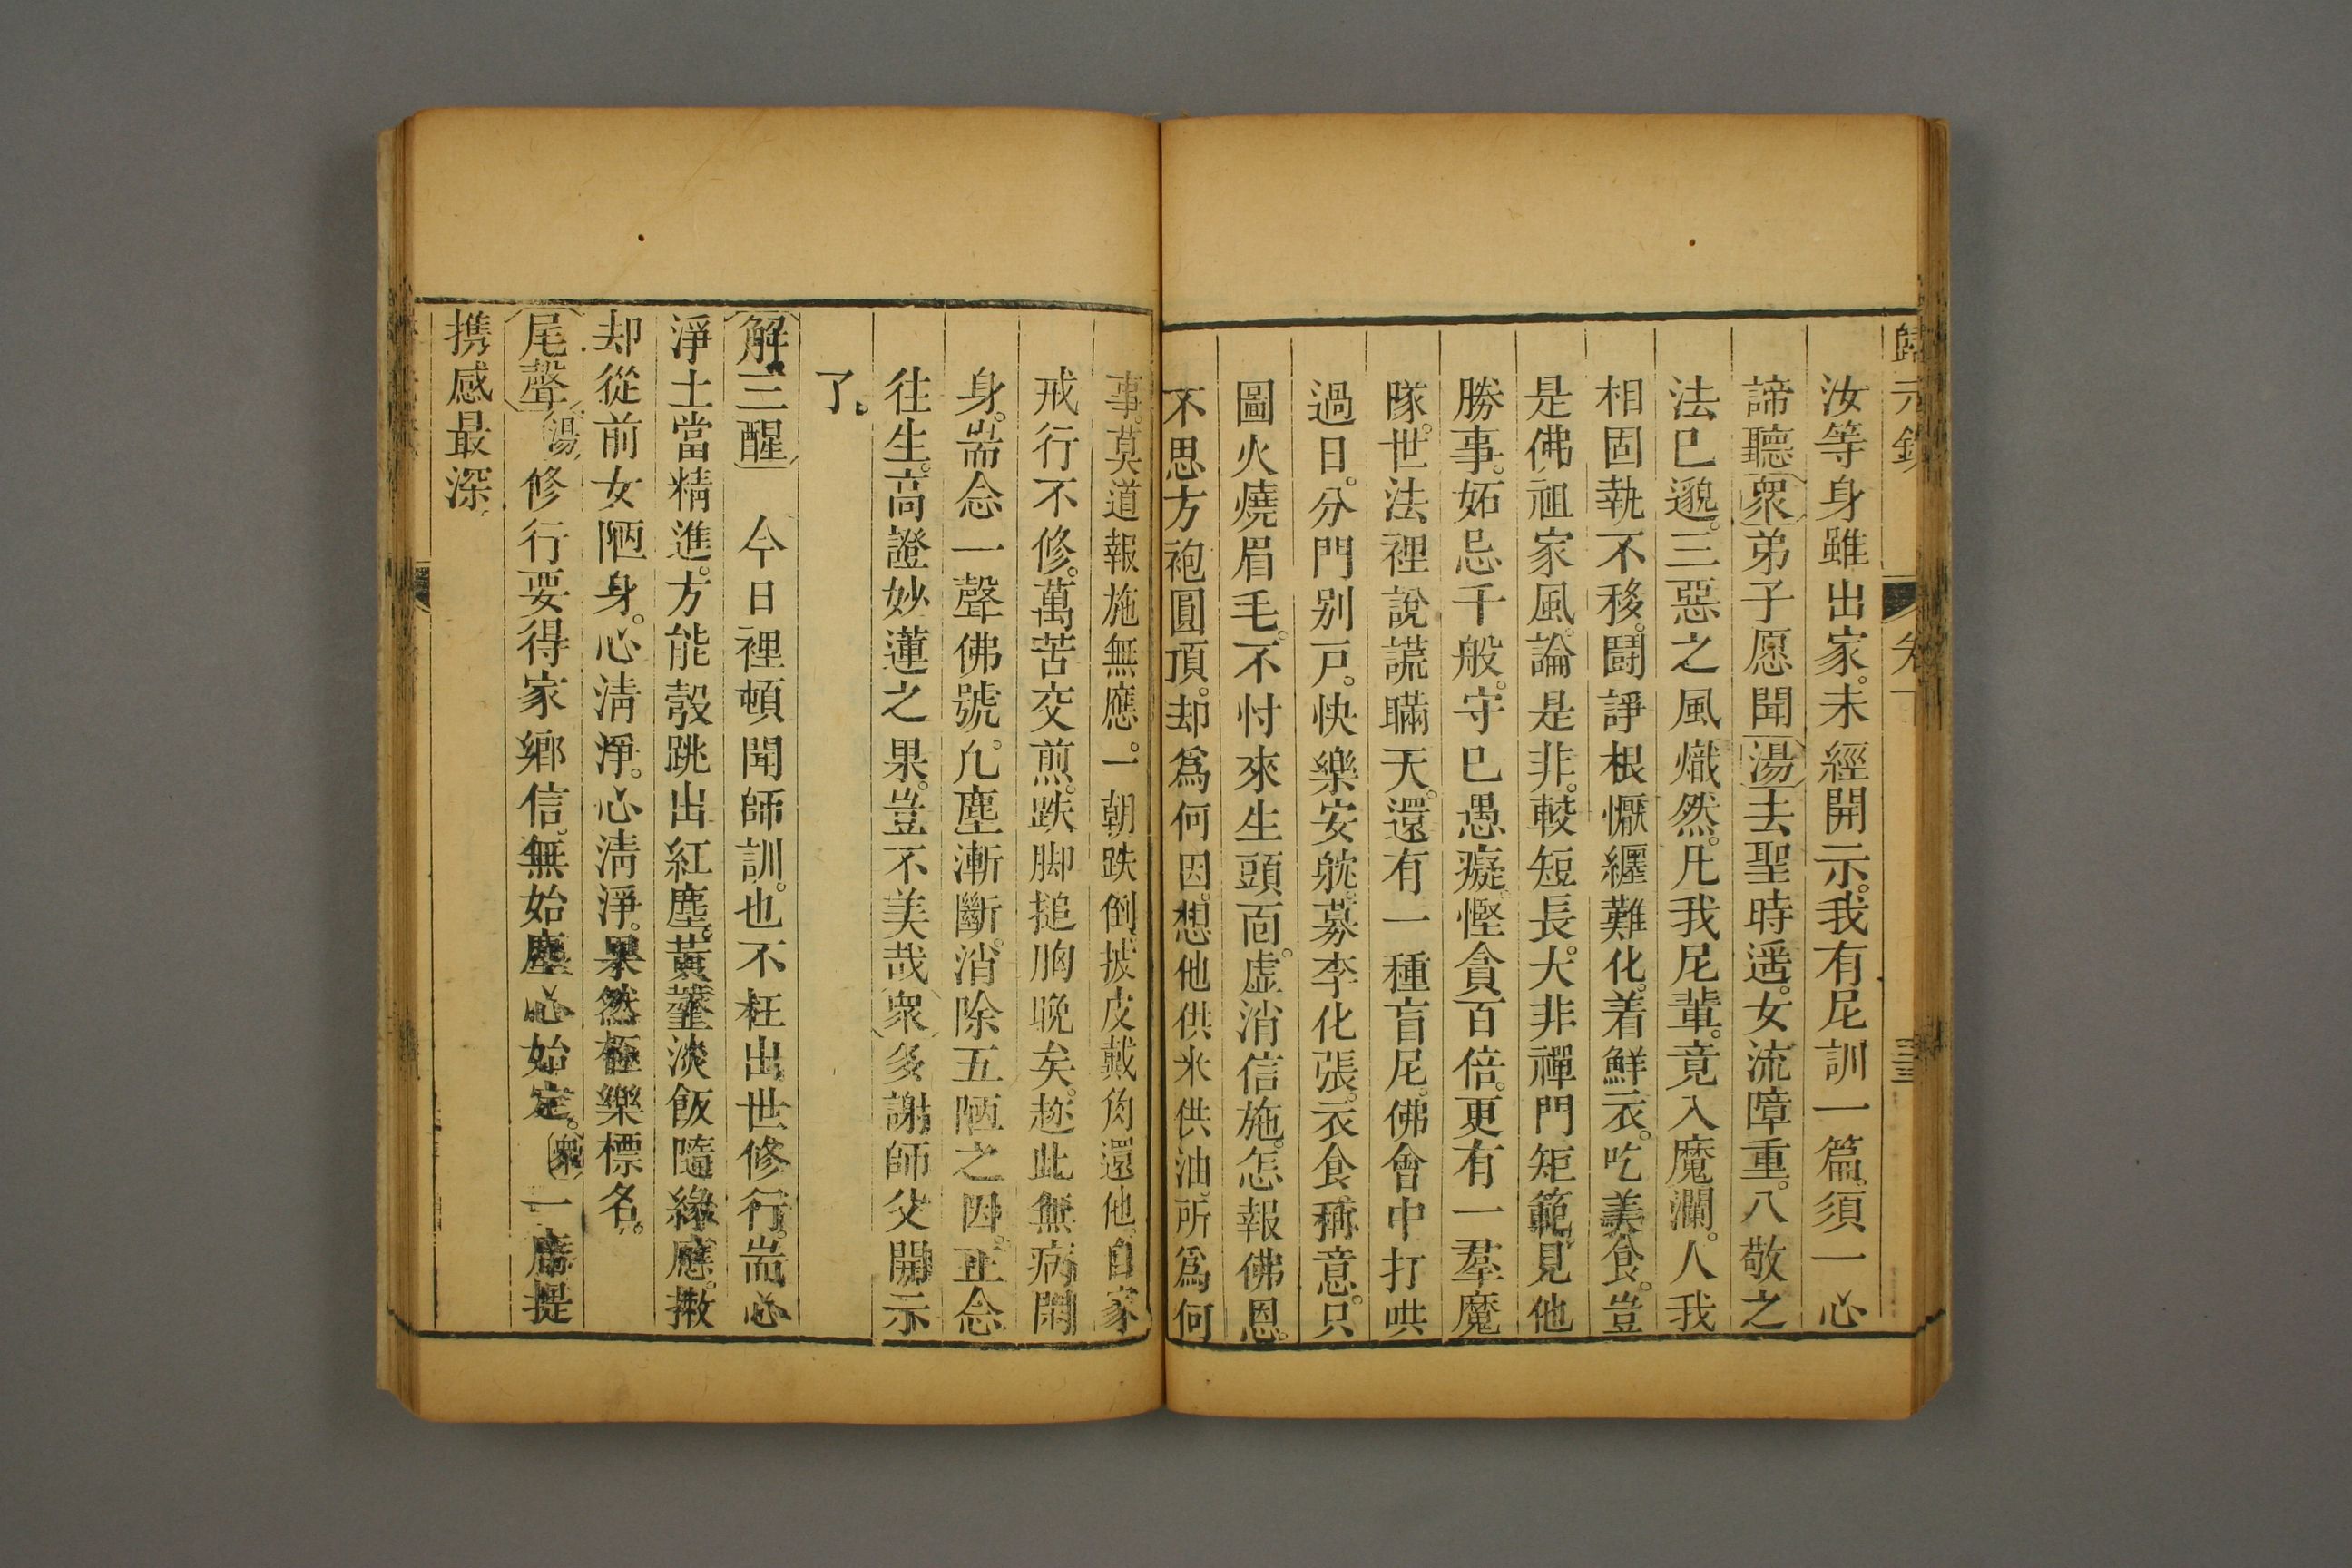 歸元鏡 卷下 三三
汝等身雖出家。未經開示。我有尼訓一篇。須一心
諦聽衆弟子愿聞湯去聖時遥。女流障重。八敬之
法已邈。三惡之風熾然。凡我尼輩。竟入魔瀾。人我
相固執不移。鬪諍根懨纒難化。着鮮衣。吃美食。豈
是佛祖家風。論是非。較短長。大非禪門矩範。見他
勝事。妬忌千般。守已愚癡。慳貪百倍。更有一羣魔
隊。世法裡說謊瞞天。還有一種盲尼。佛會中打哄
過日。分門别戸。快樂安躭。募李化張。衣食稱意。只
圖火燒眉毛。不忖來生頭面。虚消信施。怎報佛恩。
不思方袍圓頂。却爲何因。想他供米供油。所爲何
事。莫道報施無應。一朝跌倒。披皮戴角還他。自家
戒行不修。萬苦交煎。跌脚搥胸晩矣。趂此無病閑
身。耑念一聲佛號。凢塵漸斷。消除五陋之因。正念
往生。高證妙蓮之果。豈不美哉衆多謝師父開示
了。
解三酲 今日裡頓聞師訓。也不枉出世修行。耑心
淨土當精進。方能彀跳出紅塵。黃虀淡飯隨緣應。撇
却從前女陋身。心清淨。心清淨。果然極樂標名。
尾聲湯修行要得家鄉信。無始塵心始定。衆一席提
携感最深。